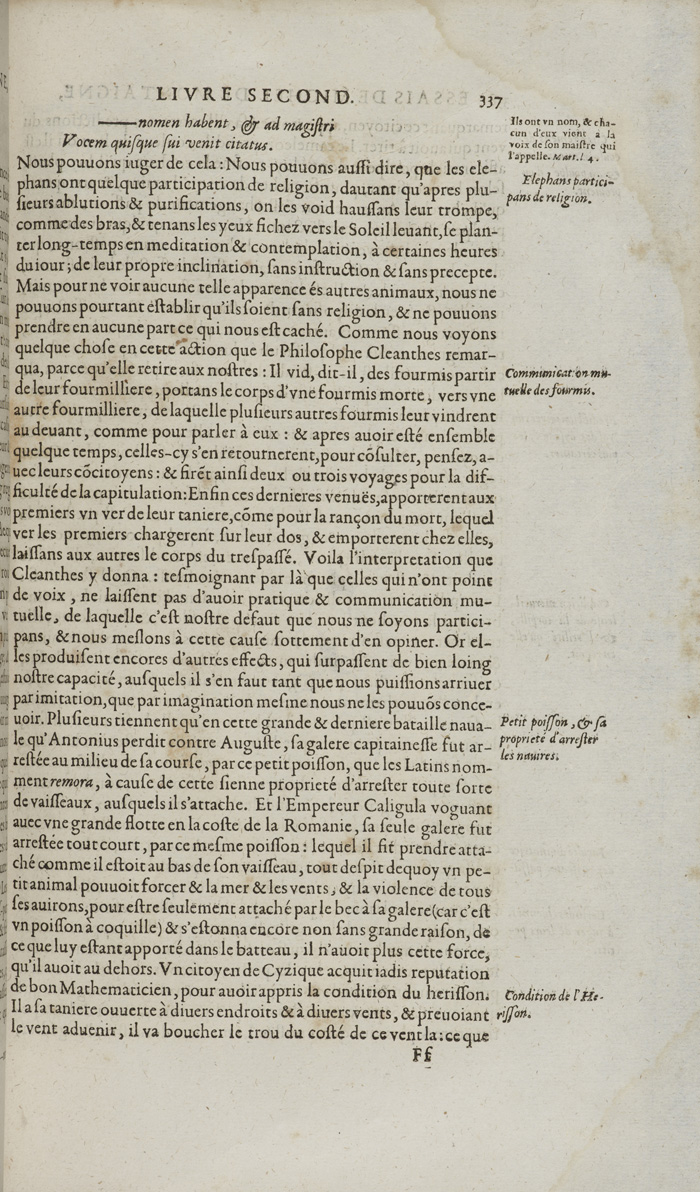 LIVRE SECOND. 337
——nomen habent, & ad magiſtri
Vocem quiſque ſui venit citatus.
Nous pouuons iuger de cela : Nous pouuons auſſi dire, que les ele-
phans ont quelque participation de religion, dautant qu'apres plu-
ſieurs ablutions & purifications, on les void hauſſans leur trompe,
comme des bras, & tenans les yeux fichez vers le Soleil leuant, ſe plan-
ter long-temps en meditation & contemplation, à certaines heures
du iour ; de leur propre inclination, ſans inſtruction & ſans precepte.
Mais pour ne voir aucune telle apparence és autres animaux, nous ne
pouuons pourtant eſtablir qu'ils ſoient ſans religion, & ne pouuons
prendre en aucune part ce qui nous eſt caché. Comme nous voyons
quelque choſe en cette action que le Philoſophe Cleanthes remar-
qua, parce qu'elle retire aux noſtres : Il vid, dit-il, des fourmis partir
de leur fourmilliere, portans le corps d'vne fourmis morte, vers vne
autre fourmilliere, de laquelle pluſieurs autres fourmis leur vindrent
au deuant, comme pour parler à eux : & apres auoir eſté enſemble
quelque temps, celles-cy s'en retournerent, pour cõſulter, penſez, a-
uec leurs cõcitoyens : & firẽt ainſi deux ou trois voyages pour la dif-
ficulté de la capitulation: Enfin ces dernieres venuës, apporterent aux
premiers vn ver de leur taniere, cõme pour la rançon du mort, lequel
ver les premiers chargerent ſur leur dos, & emporterent chez elles,
laiſſans aux autres le corps du treſpaſſé. Voila l'interpretation que
Cleanthes y donna : teſmoignant par là que celles qui n'ont point
de voix , ne laiſſent pas d'auoir pratique & communication mu-
tuelle, de laquelle c'eſt noſtre defaut que nous ne ſoyons partici-
pans, & nous meſlons à cette cauſe ſottement d'en opiner. Or el-
les produiſent encores d'autres effects, qui ſurpaſſent de bien loing
noſtre capacité, auſquels il s'en faut tant que nous puiſſions arriuer
par imitation, que par imagination meſme nous ne les pouuõs conce-
uoir. Pluſieurs tiennent qu'en cette grande & derniere bataille naua-
le qu'Antonius perdit contre Auguſte, ſa galere capitaineſſe fut ar-
reſtée au milieu de ſa courſe, par ce petit poiſſon, que les Latins nom-
ment remora, à cauſe de cette ſienne proprieté d'arreſter toute ſorte
de vaiſſeaux, auſquels il s'attache. Et l'Empereur Caligula voguant
auec vne grande flotte en la coſte de la Romanie, ſa ſeule galere fut
arreſtée tout court, par ce meſme poiſſon : lequel il fit prendre atta-
ché comme il eſtoit au bas de ſon vaiſſeau, tout deſpit dequoy vn pe-
tit animal pouuoit forcer & la mer & les vents, & la violence de tous
ſes auirons, pour eſtre ſeulement attaché par le bec à ſa galere (car c'eſt
vn poiſſon à coquille) & s'eſtonna encore non ſans grande raiſon, de
ce que luy eſtant apporté dans le batteau, il n'auoit plus cette force,
qu'il auoit au dehors. Vn citoyen de Cyzique acquit iadis reputation
de bon Mathematicien, pour auoir appris la condition du heriſſon.
Il a ſa taniere ouuerte à diuers endroits & à diuers vents, & preuoiant
le vent aduenir, il va boucher le trou du coſté de ce vent la : ce que
Ff
Ils ont vn nom, & cha-
cun d'eux vient a la
voix de ſon maiſtre qui
l'appelle. Mart. l. 4.
Elephans partici-
pans de religion.
Communication mu-
tuelle des fourmis.
Petit poiſſon, & ſa
proprieté d'arreſter
les nauires.
Condition de l'He-
riſſon.